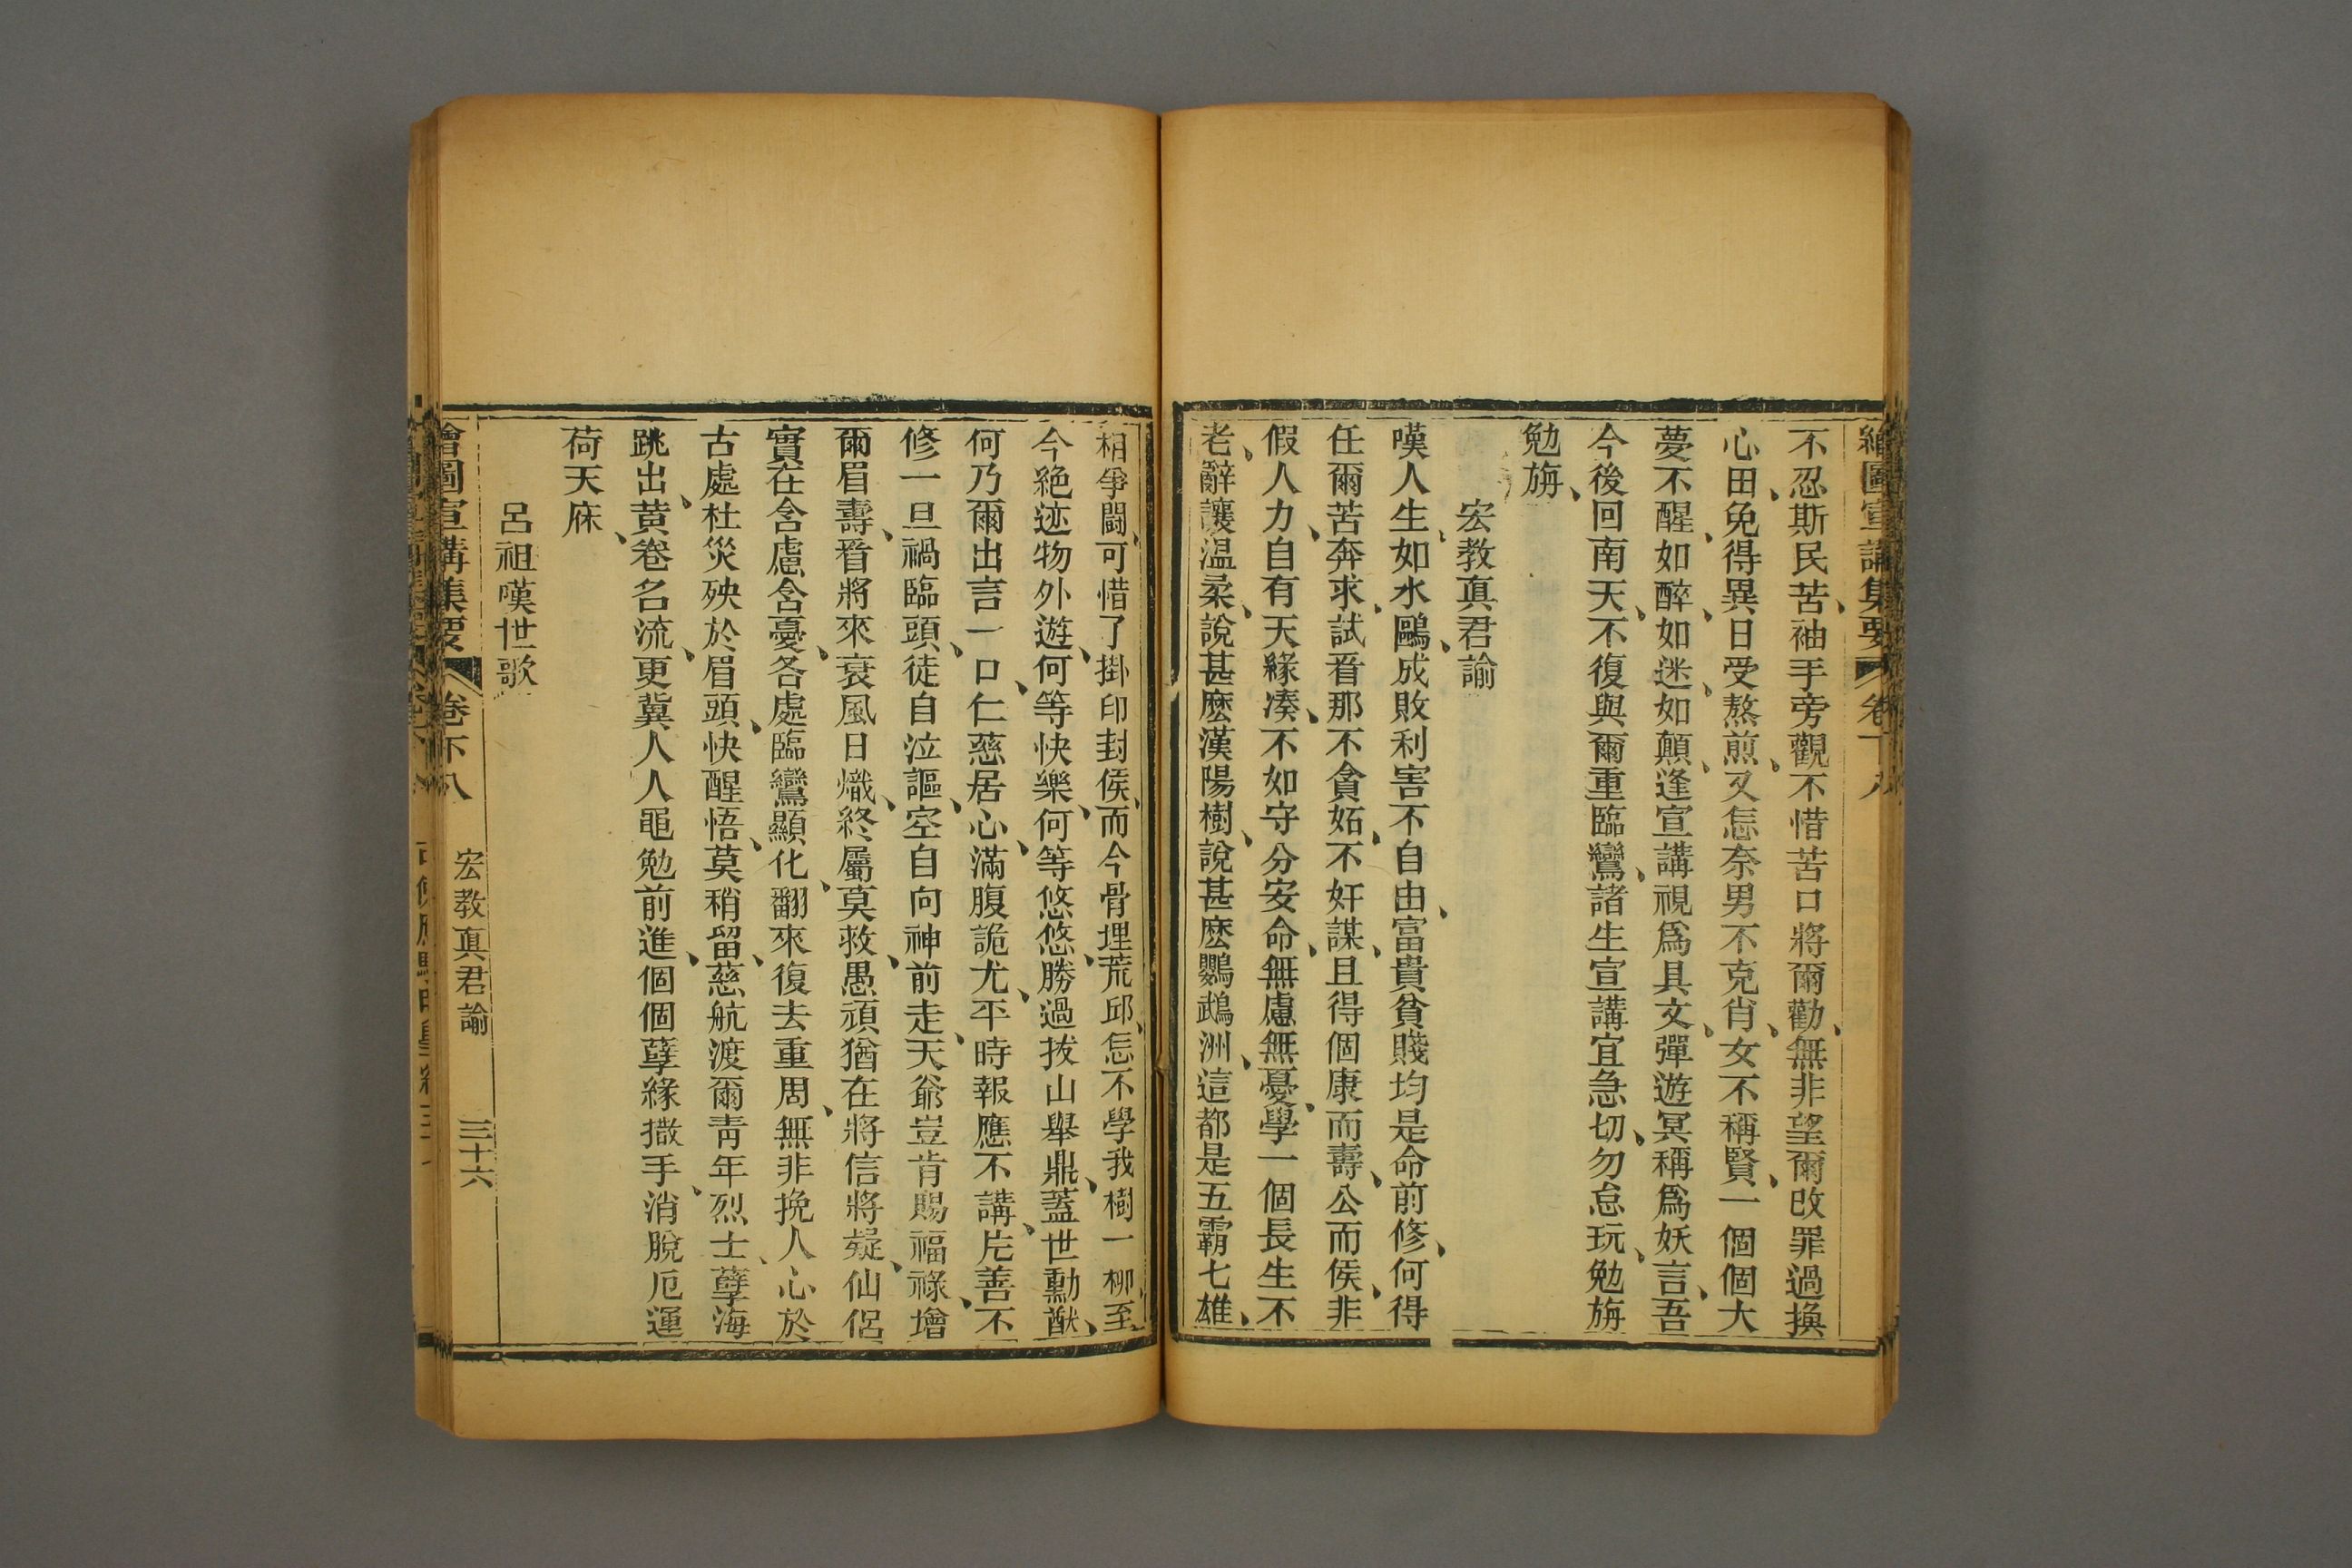 繪圖宣講集要 卷下八
不忍斯民苦、袖手旁觀、不惜苦口將爾勸、無非望爾改罪過換
心田、免得異日受熬煎、又怎奈男不克肖、女不稱賢、一個個大
夢不醒、如醉、如迷、如顛、逢宣講視爲具文、彈遊冥稱爲妖言、吾
今後回南天、不復與爾重臨鸞、諸生宣講宜急切、勿怠玩、勉旃
勉旃、
宏教真君諭
嘆人生、如水鷗、成敗利害不自由、富貴貧賤均是命前修、何得
任爾苦奔求、試看那不貪妬、不奸謀、且得個康而壽、公而侯、非
假人力、自有天緣湊、不如守分安命、無慮無憂、學一個長生不
老、辭讓溫柔、說甚麽漢陽樹、說甚麽鸚鵡洲、這都是五霸七雄、
相爭鬪、可惜了掛印封侯、而今骨埋荒邱、怎不學我樹一柳、至
今絕迹物外遊、何等快樂、何等悠悠、勝過拔山舉鼎、蓋世勳猷、
何乃爾出言一口、仁慈居心、滿腹詭尤、平時報應不講、片善不
修、一旦禍臨頭、徒自泣謳、空自向神前走、天爺豈肯賜福祿、增
爾眉壽、看將來、衰風日熾、終屬莫救、愚頑猶在將信將疑、仙侶
實在含慮含憂、各處臨鸞顯化、翻來復去重周、無非挽人心於
古處、杜災殃於眉頭、快醒悟、莫稍留、慈航渡爾青年烈士、孽海
跳出、黄卷名流、更冀人人黽勉前進、個個孽緣撒手、消脫厄運
荷天庥、
呂祖嘆世歌
繪圖宣講集要 卷下八 宏教真君諭 三十六